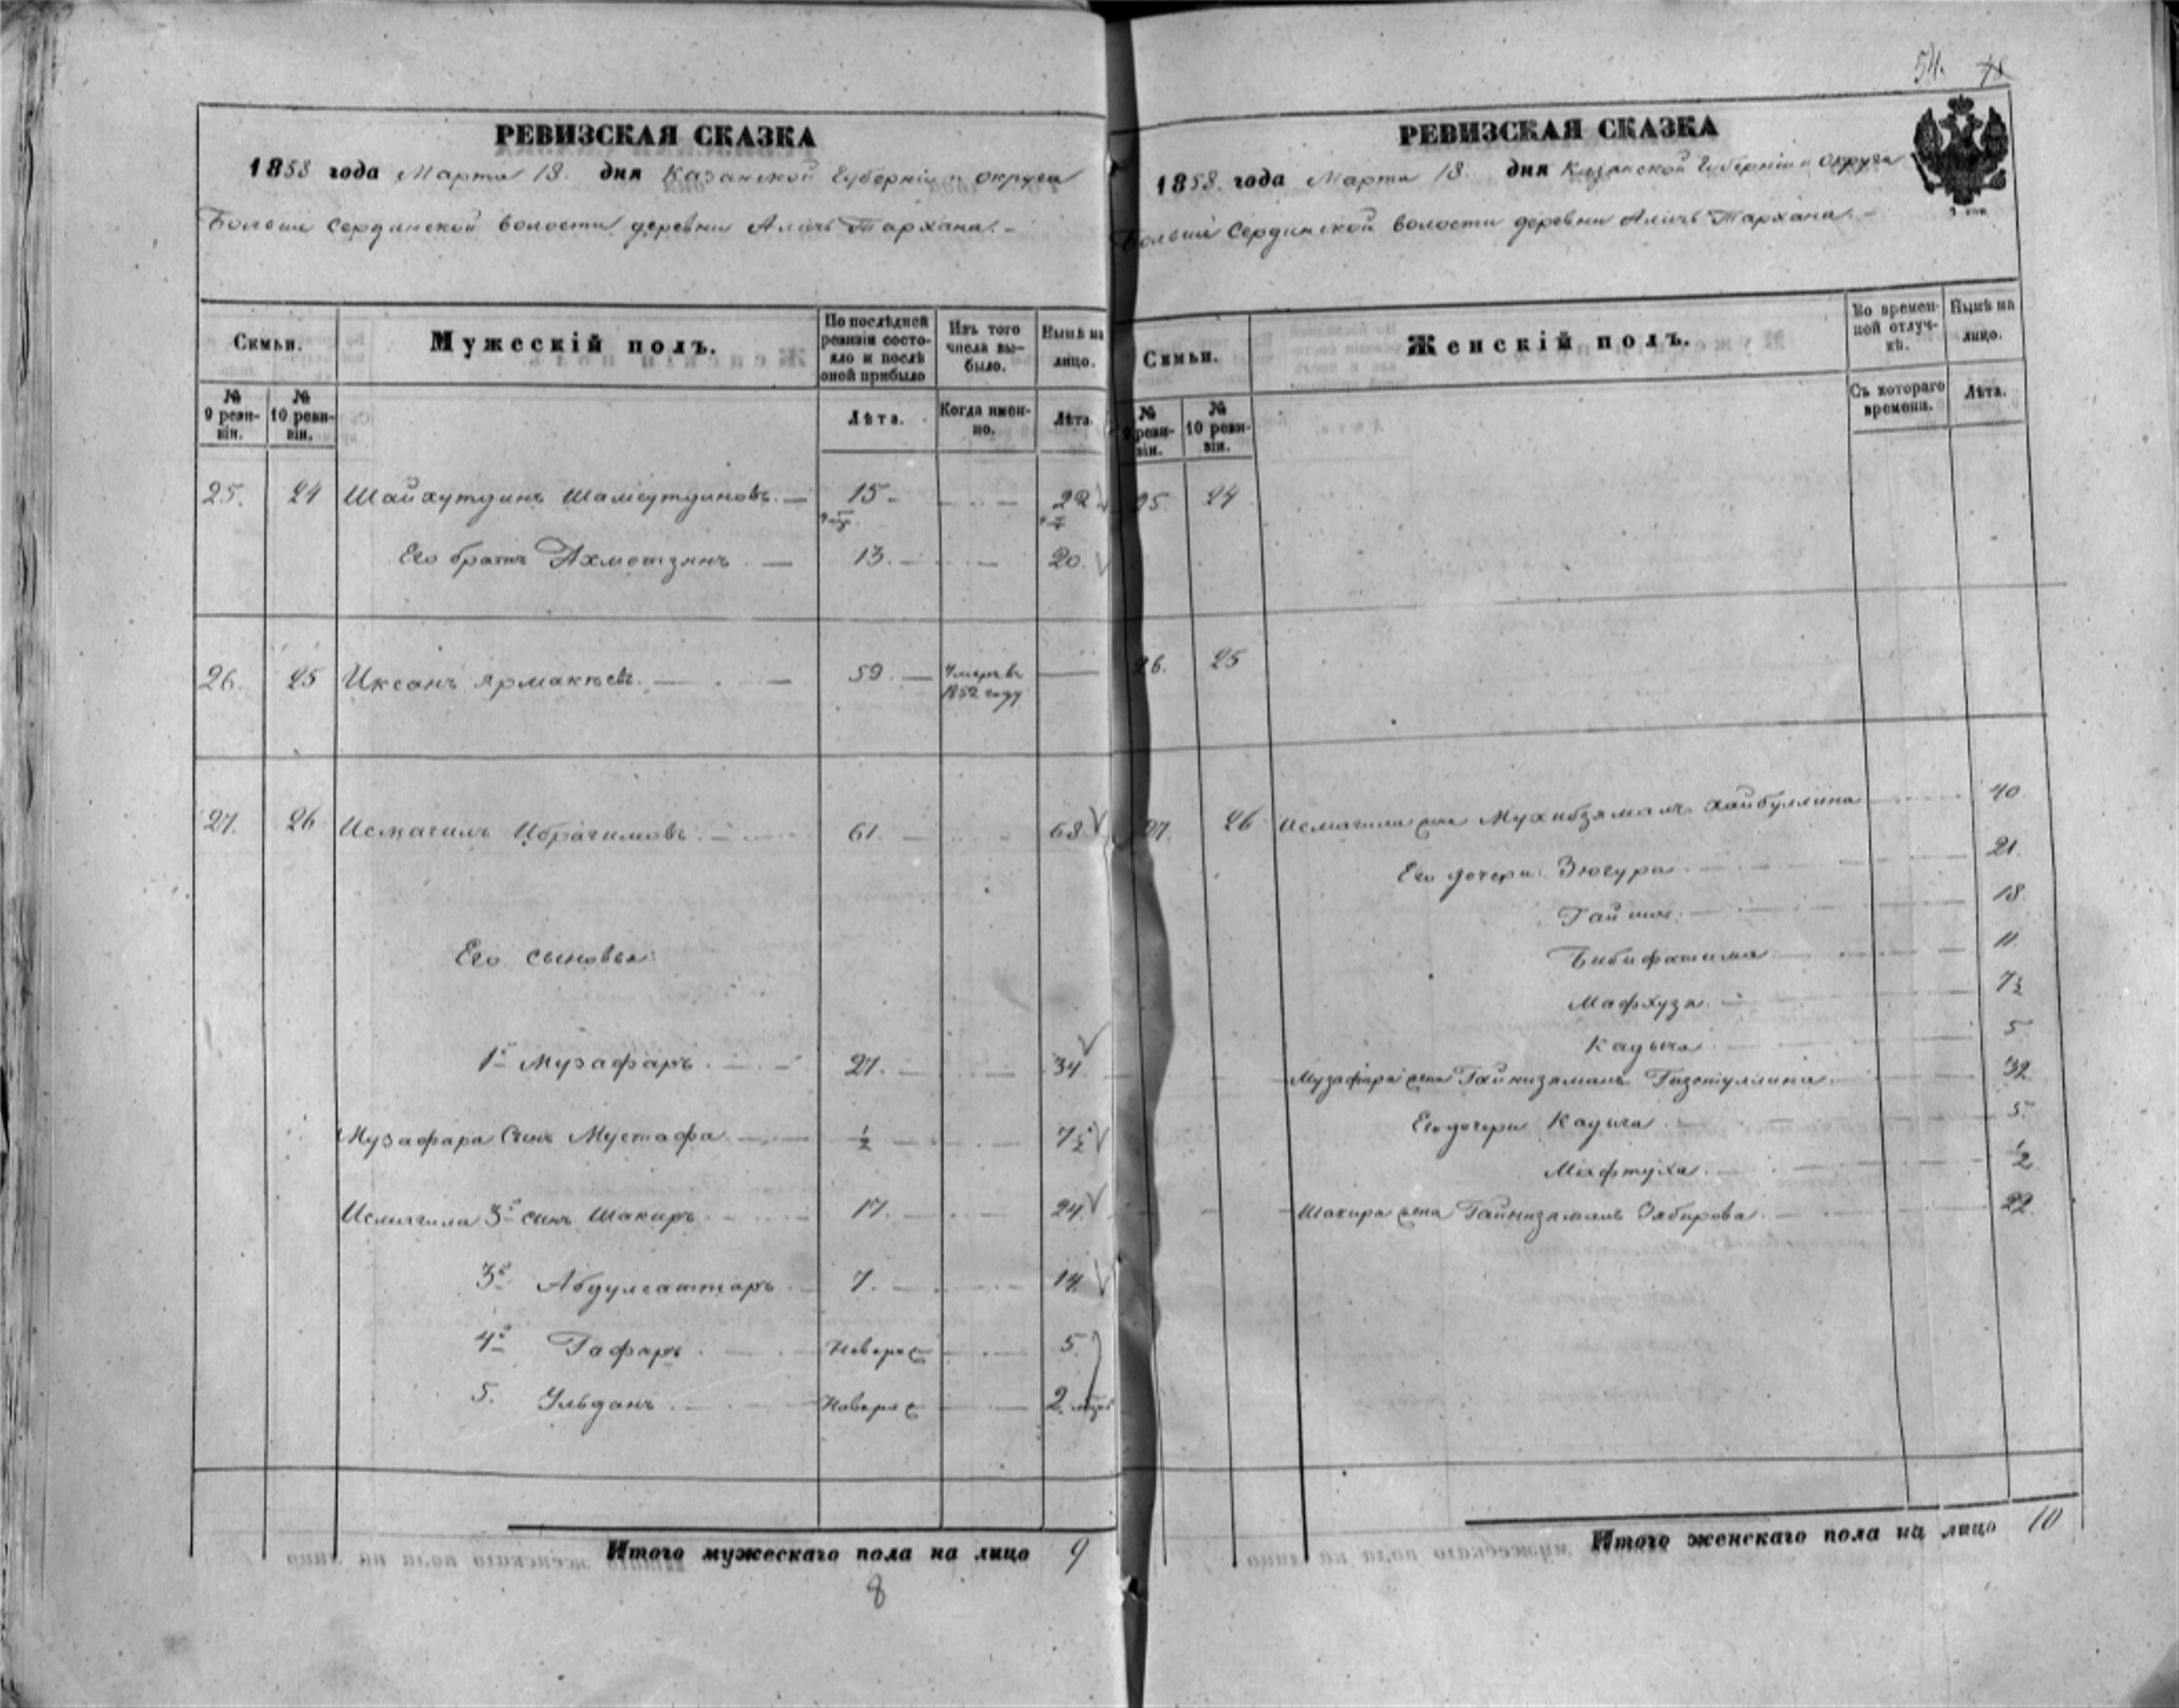 54.
РЕВИЗСКАЯ СКАЗКА
1858 года Марта 18. дня Казанской Губернiи и округа
Больше Сердинской волости деревни Алачь Тархана.
Семьи.
Мужескiй полъ.
По послѣдней ревизiи состояло и послѣ оной прибыло
Изъ того числа выбыло.
Нынѣ на лицо.
№ 9 ревизiи.
№ 10 ревизiи.
Лѣта.
Когда именно.
Лѣта.
25. 24 Шайхутдинъ Шамсутдиновъ. 15 22
Его братъ Ахметзянъ 13. 20.
26. 25 Иксанъ Ярмакѣевъ. 59. Умеръ въ 1852 году
27. 26 Исмагилъ Ибрагимовъ. 61. 68
Его сыновья:
1й Музафаръ. 27. 34
Музафара сынъ Мустафа. ½ 7½
Исмагила 3й сынъ Шакиръ. 17. 24
3й Абдулсаттаръ 7. 14
4й Гафаръ Новорж 5.
5. Ульданъ Новорж 2. мѣся
Итого мужескаго пола на лицо 9
8
РЕВИЗСКАЯ СКАЗКА
1858. года Марта 18. дня Казанской Губернiи и округа
Больше Сердинской волости деревни Алачь Тархана.
3 коп
Семьи.
Женскiй полъ.
Во временной отлучкѣ.
Нынѣ на лицо.
№ 9 ревизiи.
№ 10 ревизiи.
Съ котораго времени.
Лѣта.
25. 24
26. 25
27. 26 Исмагила жена Мухибзямалъ Хайбуллина 40.
Его дочери: Зюгура 21.
Гайша. 18.
Бибифатима 11.
Мафхуза. 7½
Кадыча 5
Музафара жена Гайнизямалъ Гизетуллина 32
Его дочери Кадыча 5.
Мафтуха. ½
Шакира жена Гайнизямалъ Зябирова. 22.
Итого женскаго пола на лицо 10